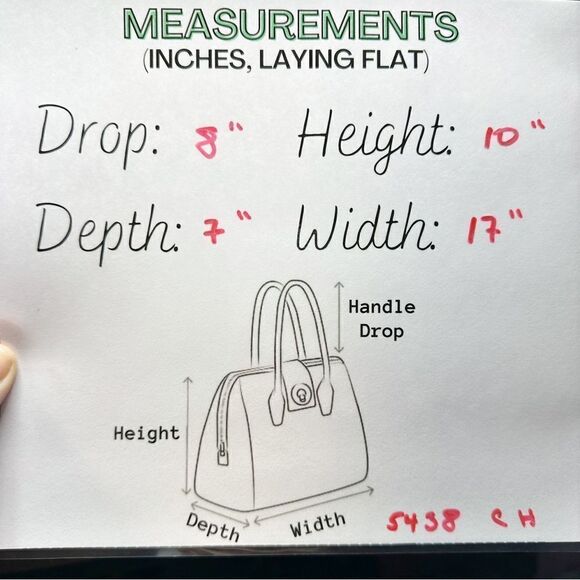 MEASUREMENTS
(INCHES, LAYING FLAT)
Drop: 8" Height: 10"
Depth: 7" Width: 17"
Handle
Drop
Height
Depth Width
5438 CH